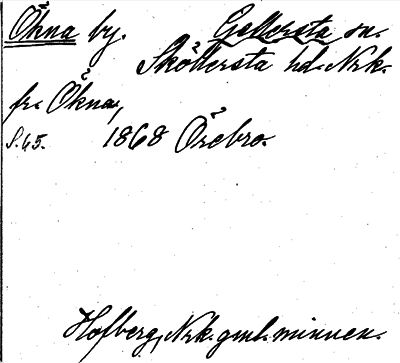 Ökna by. Gällersta sn.
Sköllersta hd. Nrk.
fr. Ökna,
S. 45. 1868 Örebro.
Hofberg, Nrk. gml. minnen.